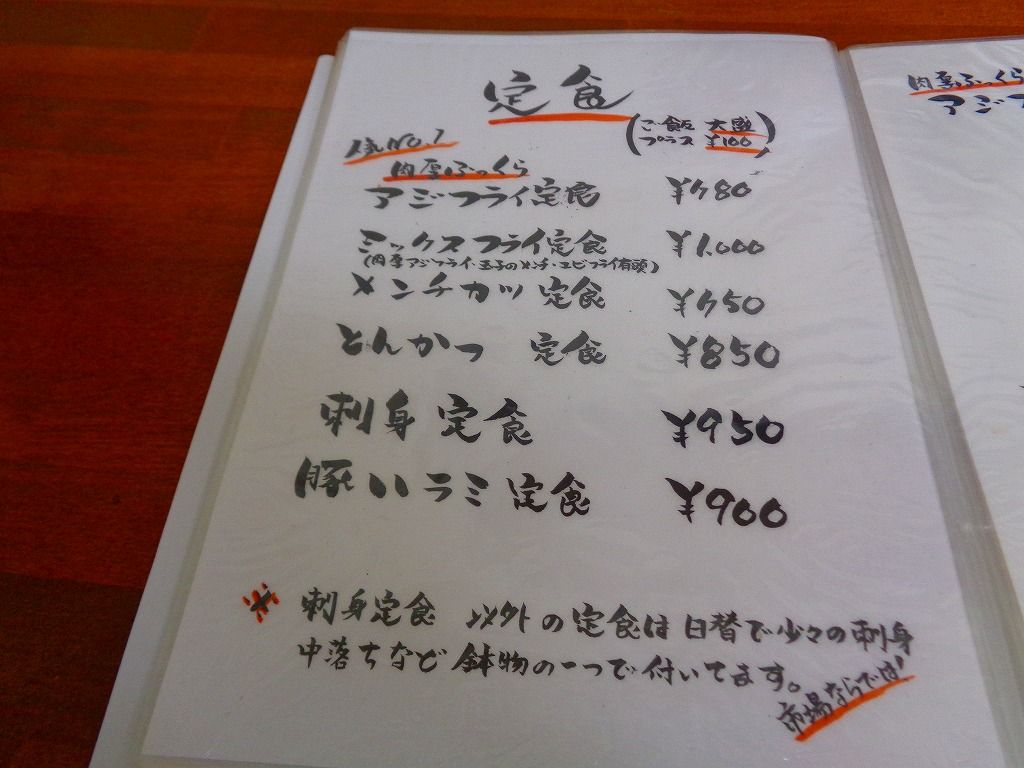 定食
(ご飯 大盛
プラス ¥100)
人気No.1
肉厚ふっくら
アジフライ定食 ¥780
ミックスフライ定食 ¥1.000
(肉厚アジフライ・玉子のメンチ・エビフライ有頭)
メンチカツ 定食 ¥750
とんかつ 定食 ¥850
刺身 定食 ¥950
豚ハラミ 定食 ¥900
※ 刺身定食 以外の定食は日替で少々の刺身
中落ちなど 鉢物の一つで付いてます。
市場ならでは!
肉厚ふっくら
アジフ